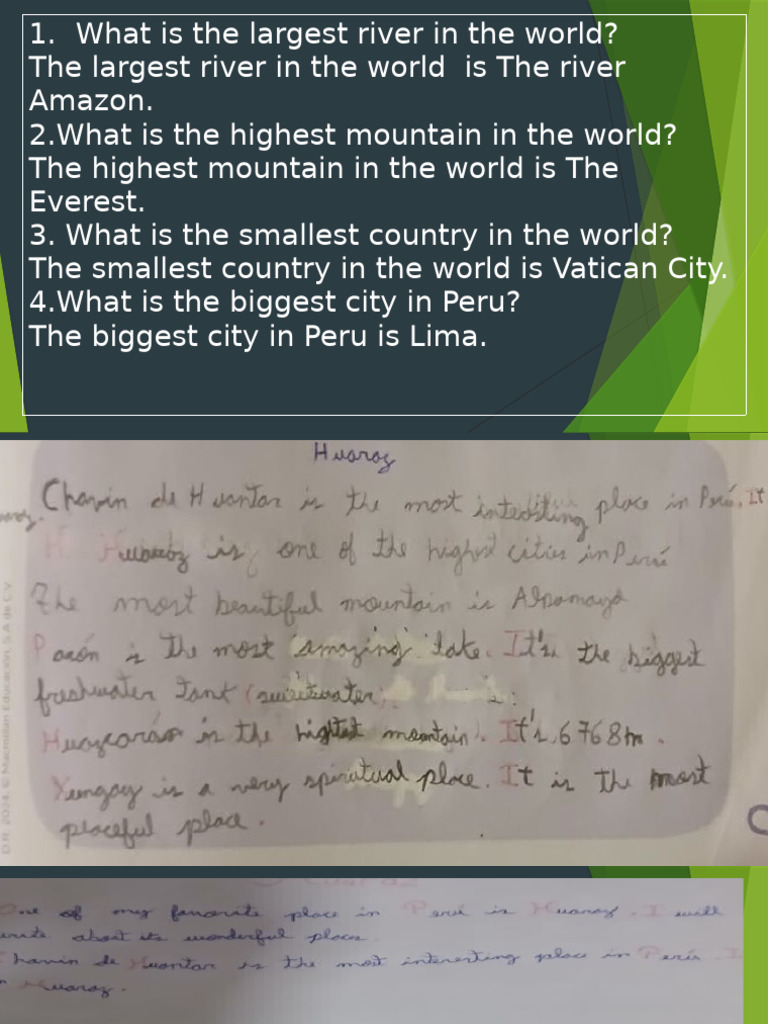 1. What is the largest river in the world?
The largest river in the world is The river
Amazon.
2.What is the highest mountain in the world?
The highest mountain in the world is The
Everest.
3. What is the smallest country in the world?
The smallest country in the world is Vatican City.
4.What is the biggest city in Peru?
The biggest city in Peru is Lima.
Huaraz
Chavin de Huantar is the most place in Perú. It
is one of the highest cities in Perú
The most beautiful mountain is Alpamayo
Parón is the most amazing lake. It's the biggest
freshwater tant
Huazcarán is the mountain. It's 6768m.
Yungay is a very place. It is the most
peaceful place.
D.R. 2024 © Macmillan Educación, S.A de C.V
One of my favorite place in Perú is Huaraz. I will
write about its wonderful places.
Chavin de Huantar is the most interesting place in Perú. I
Huaraz.